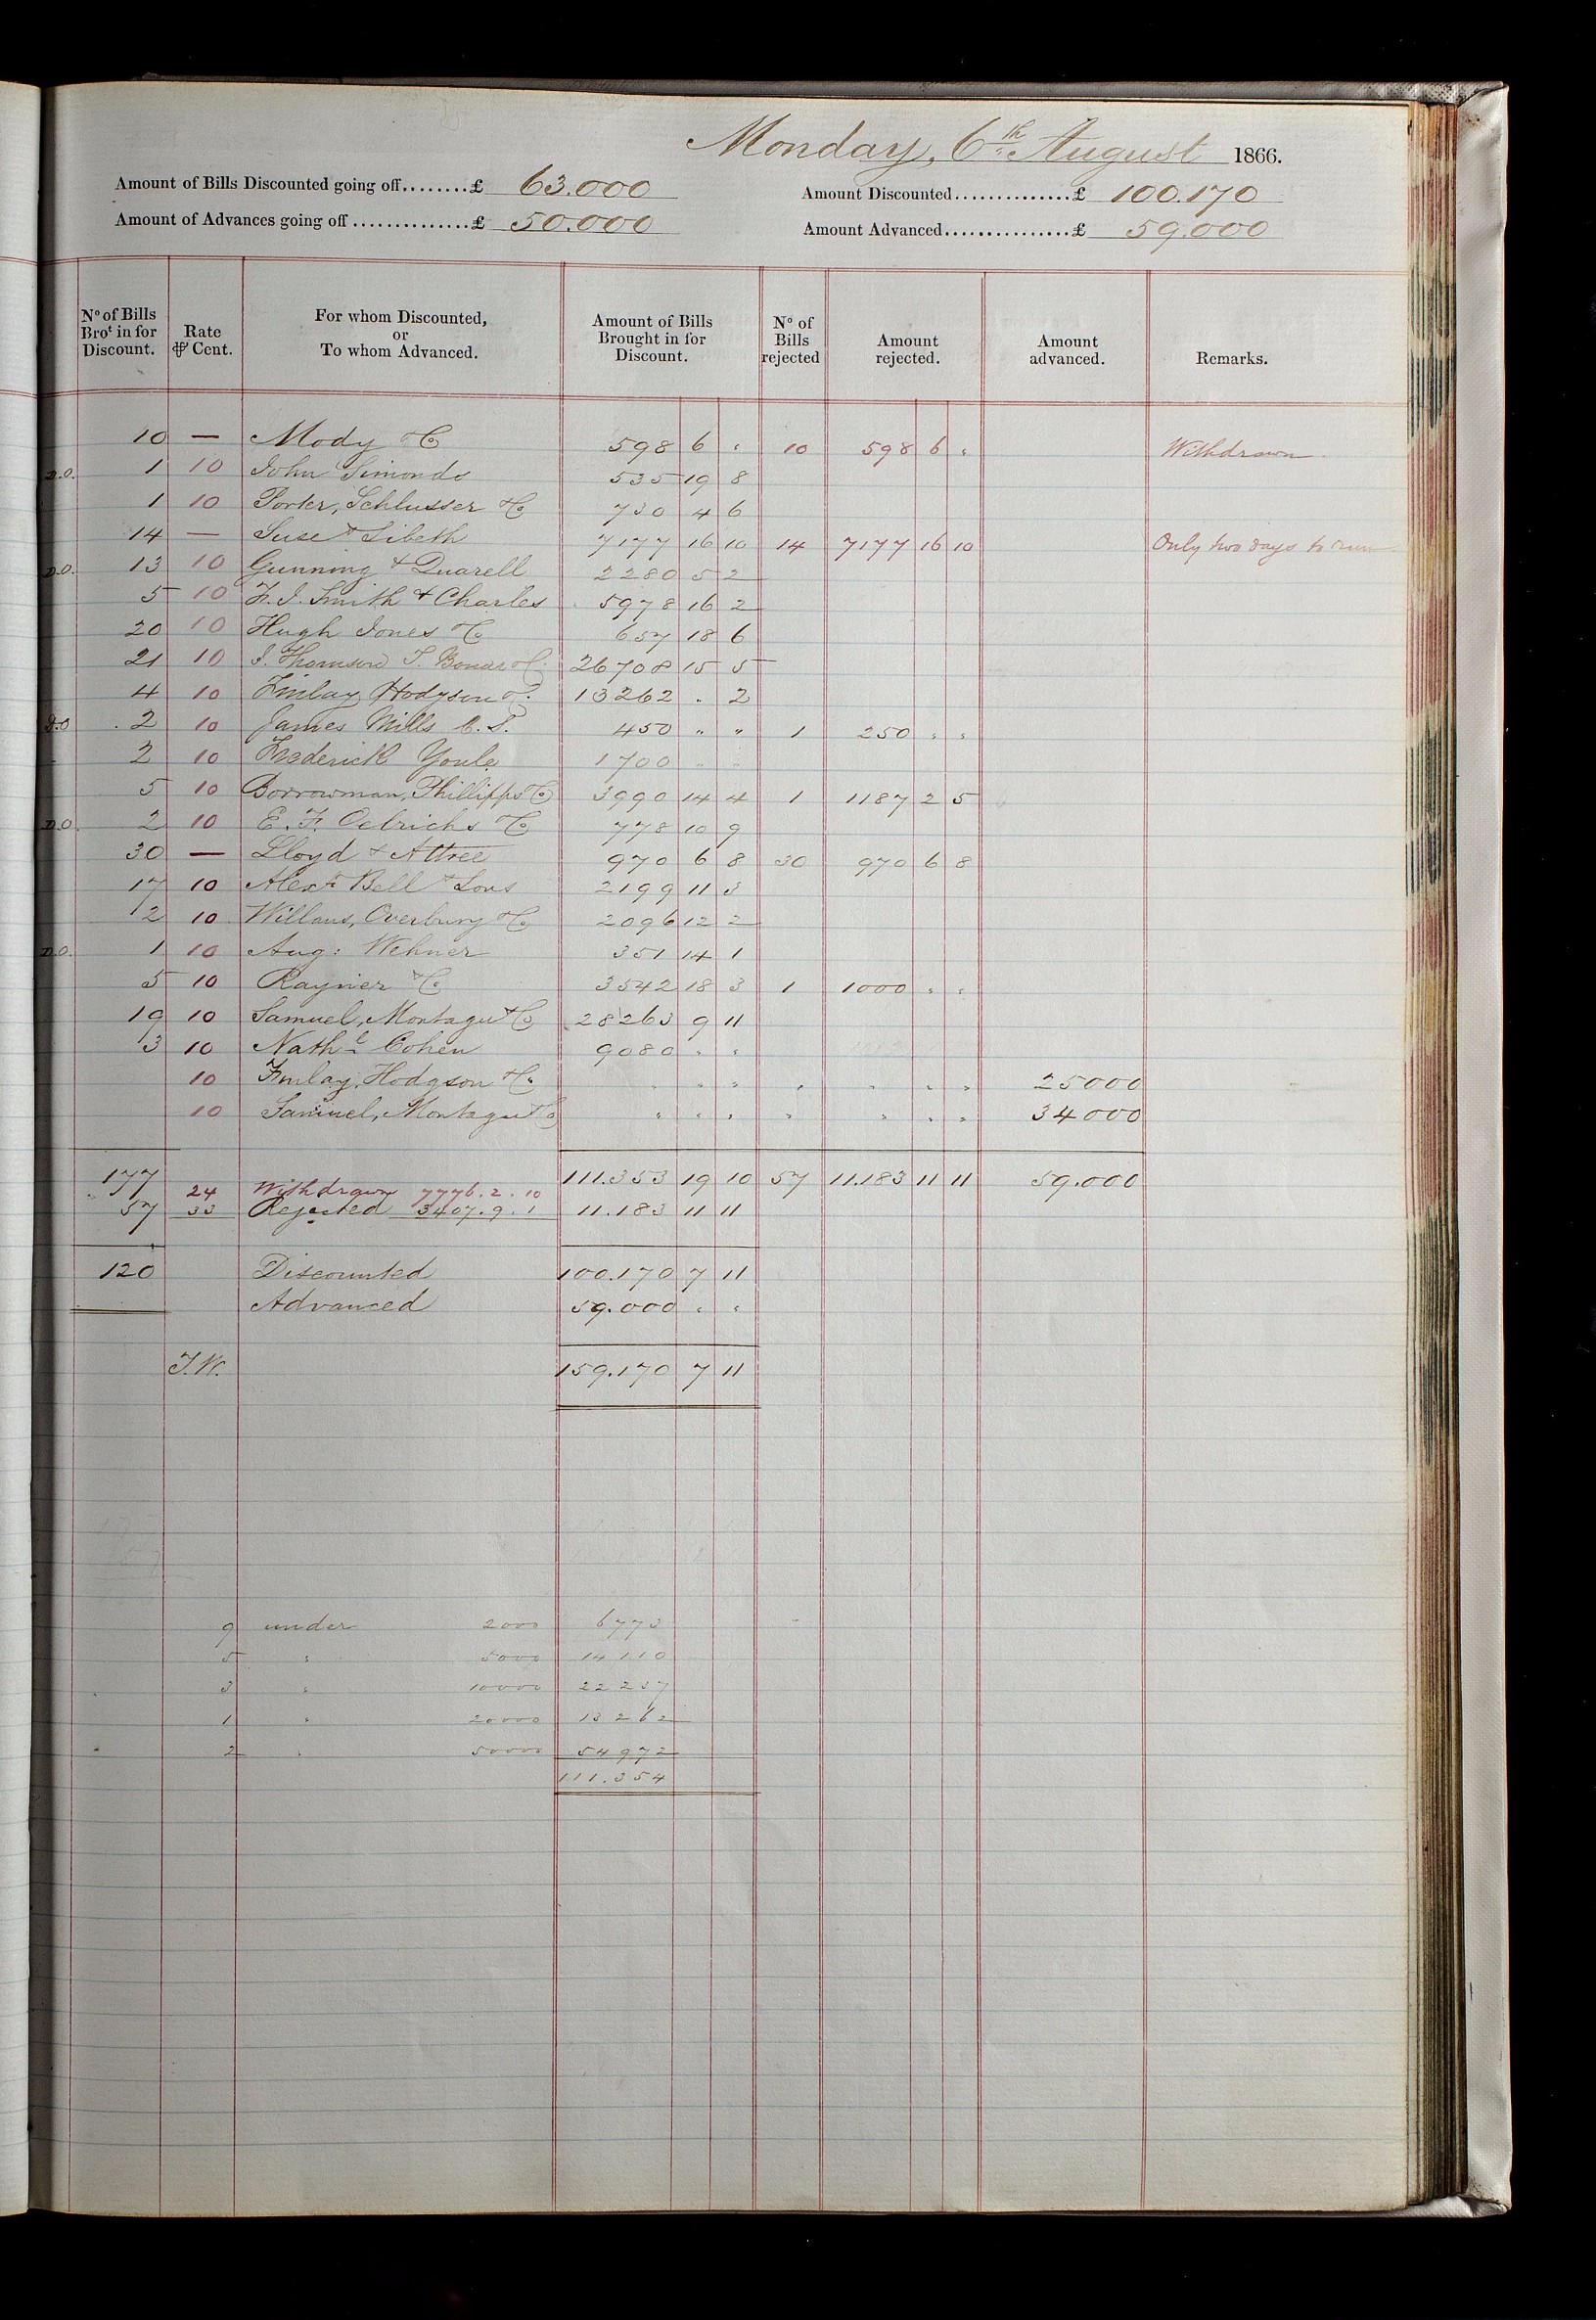 Monday, 6th August 1866.
Amount of Bills Discounted going off........£ 63.000 Amount Discounted..............£ 100.170
Amount of Advances going off...............£ 50.000 Amount Advanced................£ 59.000
No of Bills Brot in for Discount. Rate ⅌ Cent. For whom Discounted, or To whom Advanced. Amount of Bills Brought in for Discount. No of Bills rejected Amount rejected. Amount advanced. Remarks.
10 — Mody & Co 598 6 " 10 598 6 " Withdrawn
D.O. 1 10 John Simonds 535 19 8
1 10 Porter, Schlusser & Co 730 4 6
14 — Suse & Sibeth 7177 16 10 14 7177 16 10 Only two days to run
D.O. 13 10 Gunning & Quarell 2280 5 2
5 10 F. J. Smith & Charles 5978 16 2
20 10 Hugh Jones & Co 657 18 6
21 10 J. Thomson T. Bonar & Co 26708 15 5
4 10 Finlay Hodgson & Co 13262 . 2
D.O 2 10 James Mills 450 " " 1 250 " "
2 10 Frederick Youle 1700 " "
5 10 Borrowman, Phillipps & Co 3990 14 4 1 1187 2 5
D.O. 2 10 E. F. Oelrichs & Co 778 10 9
30 — Lloyd & Attree 970 6 8 30 970 6 8
17 10 Alexr Bell & Sons 2199 11 3
2 10 Willans, Overbury & Co 2096 12 2
D.O. 1 10 Aug: Wehner 351 14 1
5 10 Rayner & Co 3542 18 3 1 1000 " "
19 10 Samuel, Montagu & Co 28263 9 11
3 10 Nathl Cohen 9080 " "
10 Finlay, Hodgson & Co " " " " " " " 25000
10 Samuel, Montagu & Co " " " " " " " 34000
177 111.353 19 10 57 11.183 11 11 59.000
24 Withdrawn 7776.2.10
57 33 Rejected 3407.9.1 11.183 11 11
120 Discounted 100.170 7 11
Advanced 59.000 " "
J.W. 159.170 7 11
9 under 2000 6773
5 " 5000 14110
3 " 10000 22237
1 " 20000 13262
2 " 50000 54972
111.354